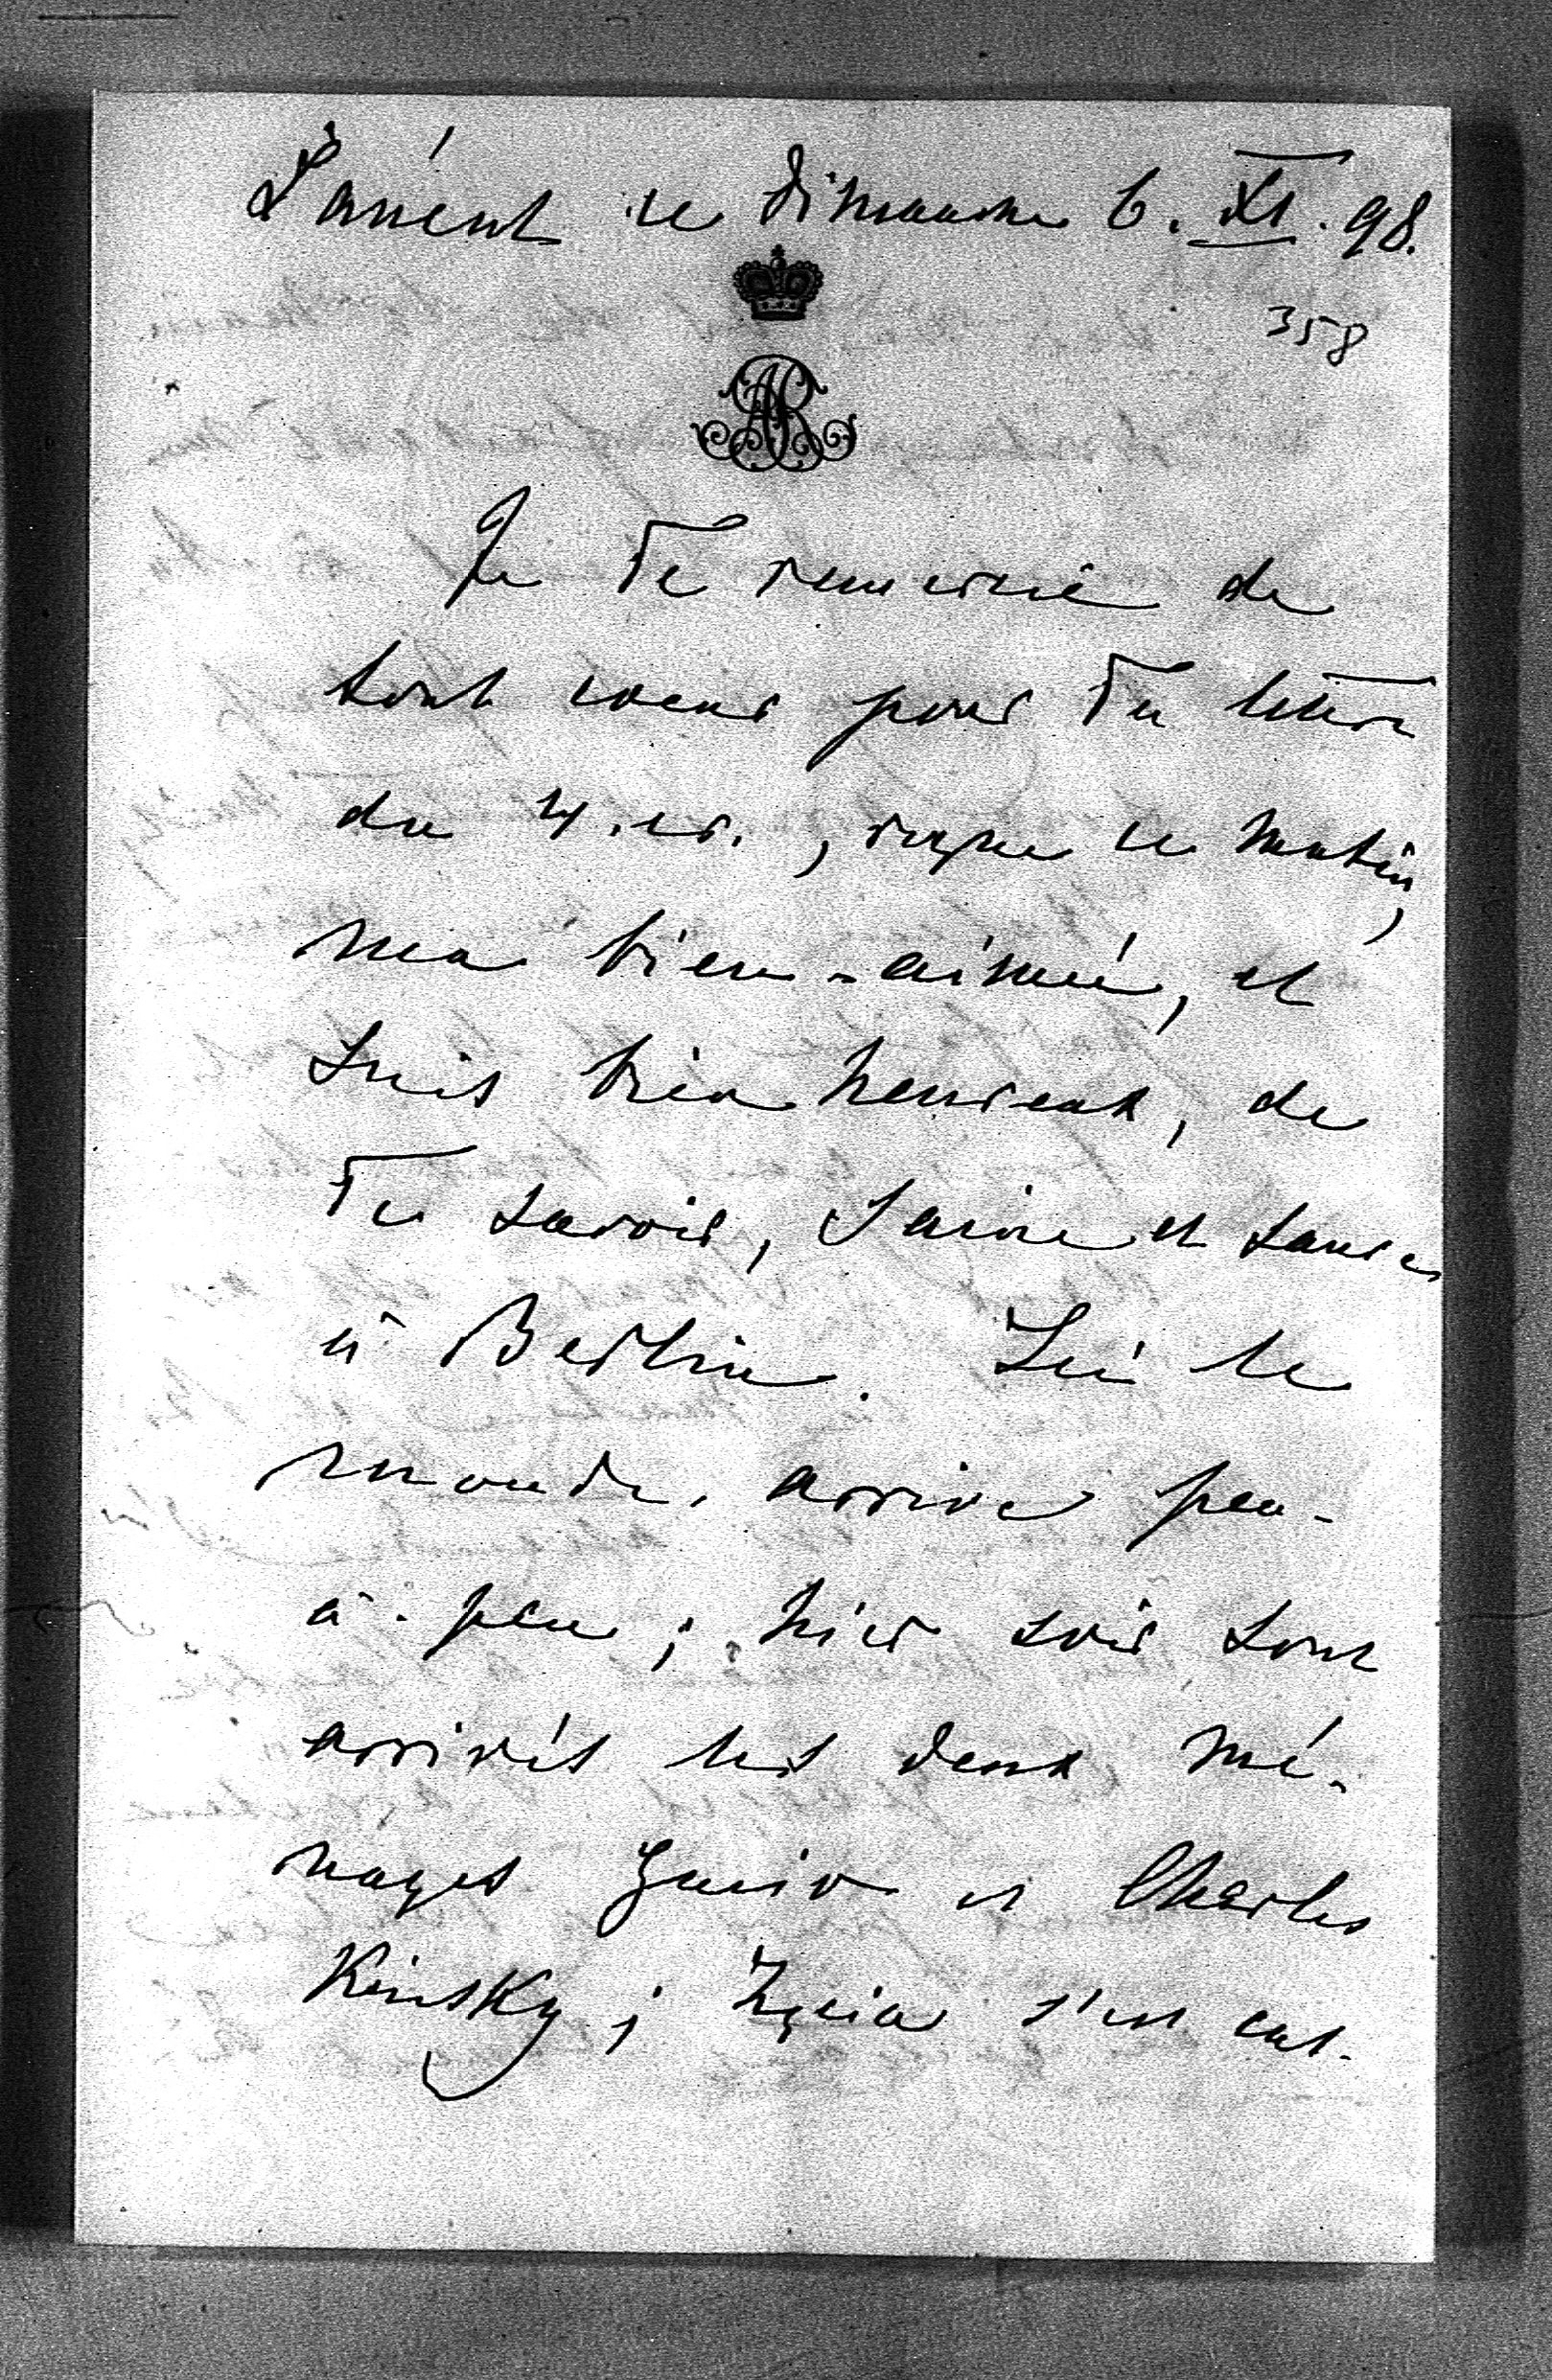 Łancut ce dimanche 6. XI. 98.
358
AR
Je Te remercie de
tout coeur pour Ta lettre
du 4. cr., reçue ce matin,
ma bien-aimée, et
suis bien heureux, de
Te savoir, saine et sauve
à Berlin. Ici le
monde, arrive peu-
à-peu; hier soir sont
arrivés les deux mé-
nages et Charles
Kinsky; s'est